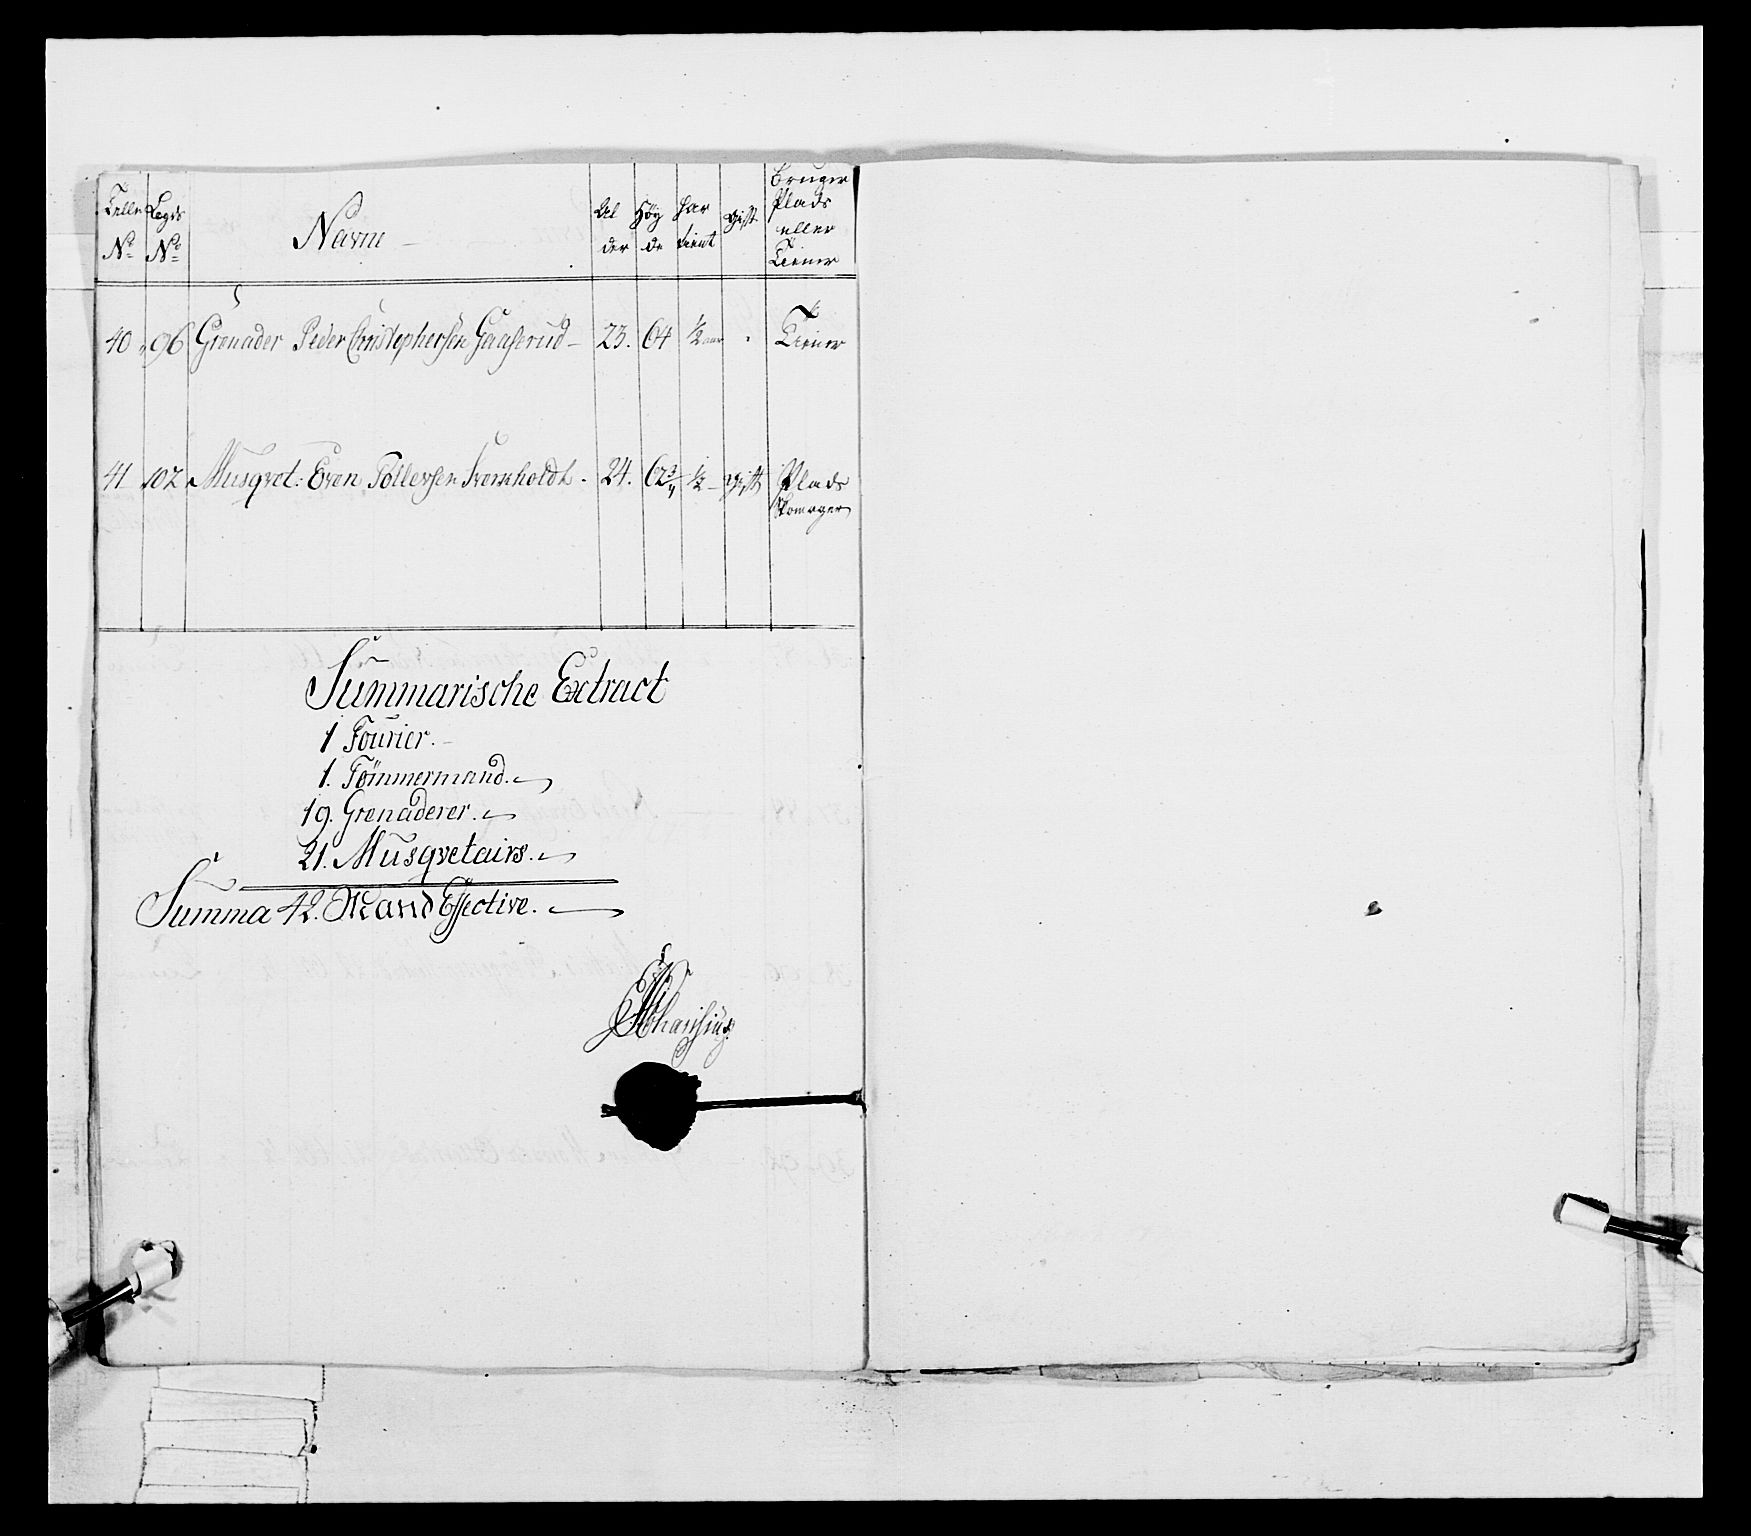 Telle No Legds No Navn Al der Høy de har tient Gift Bruger Plads eller Tiener
40 96 Grenader Peder Christophersen Gaaserud 23. 64 1/2 aar Tiener
41 102 Musqvet: Even Tollevsen 24. 62 3/4 1/2 Gift Plads
Skomager
Summarische Extract
1 Fourier.
1. Tömmermand.
19. Grenaderer.
21. Musqvetairs.
Summa 42. Mand Effective.